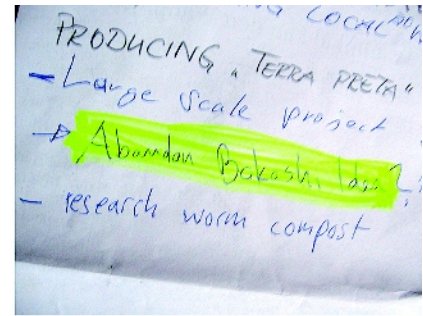 LOCAL
PRODUCING „TERRA PRETA“
- Large scale project
→ Abandon Bokashi Idea?
- research worm compost